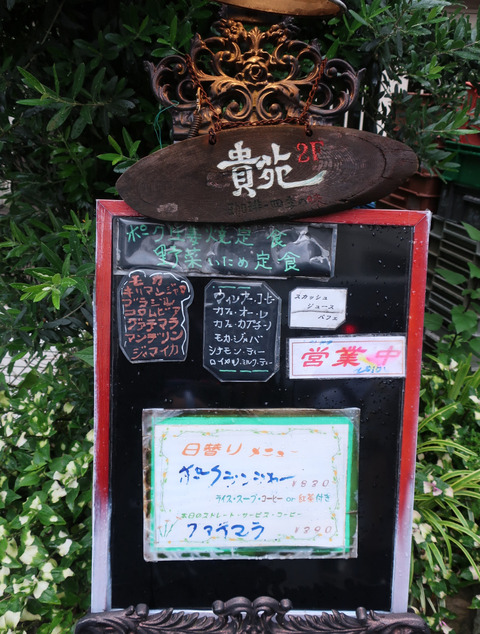 貴苑 2F
ポーク生姜焼定食
野菜いため定食
モカ
キリマンジャロ
ブラジル
コロムビア
グァテマラ
マンデリン
ジャマイカ
ウィンナーコーヒー
カフェ・オーレ
カフェ・カプチーノ
モカ・ジャバ
シナモン・ティー
ロイヤルミルク・ティー
スカッシュ
ジュース
パフェ
営業中
日替りメニュー
ポークジンジャー ¥830
ライス・スープ・コーヒー or 紅茶付き
本日のストレート・サービス・コーヒー
グァテマラ